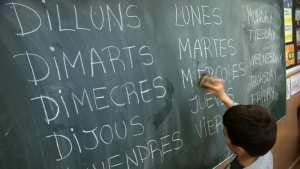 DILLUNS LUNES MONDAY
DIMARTS MARTES TUESDAY
DIMECRES MIÉRCOLES WEDNESDAY
DIJOUS JUEVES THURSDAY
VIER FRIDAY